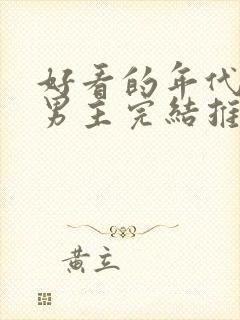 好看的年代
男主完結推
黃立